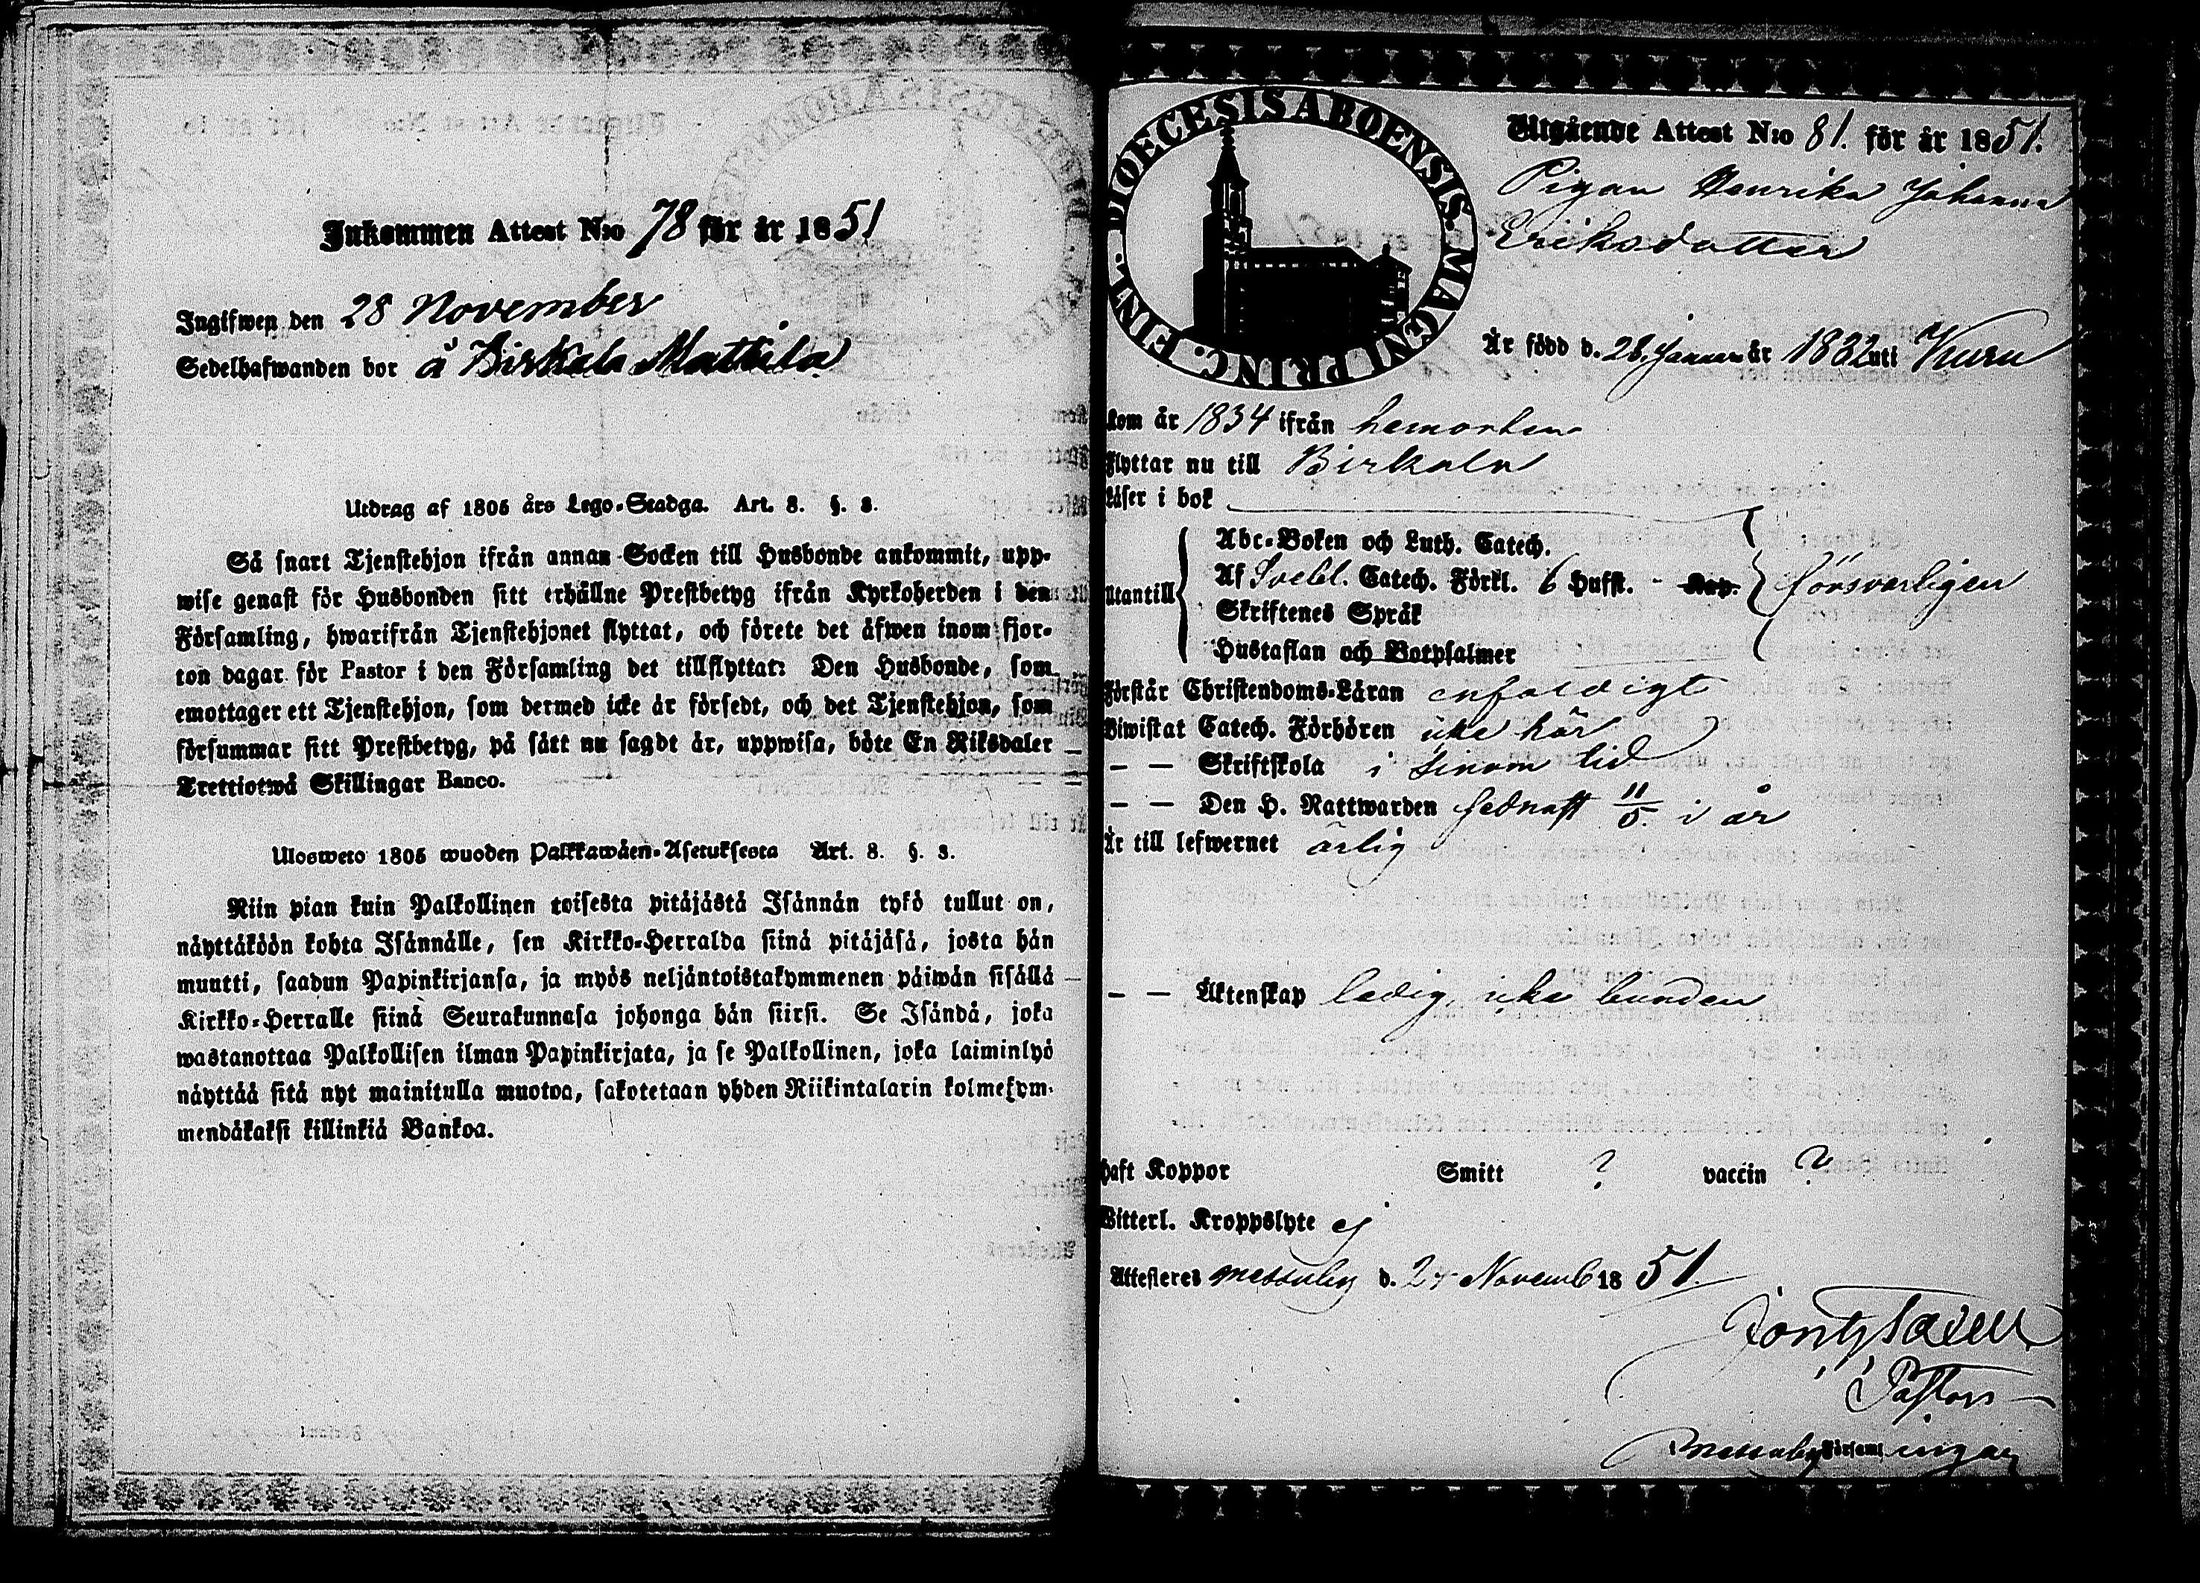 Inkommen Attest N:o 78 för år 1851
Ingifwen den 28 November
Sedelhafwanden bor å Birkala Mattila
Utdrag af 1805 års Lego-Stadga. Art. 8. §. 3.
Så snart Tjenstehjon ifrån annan Socken till Husbonde ankommit, upp-
wise genast för Husbonden sitt erhållne Prestbetyg ifrån Kyrkoherden i den
Församling, hwarifrån Tjenstehjonet flyttat, och förete det äfwen inom fjor-
ton dagar för Pastor i den Församling det tillflyttat: Den Husbonde, som
emottager ett Tjenstehjon, som dermed icke är försedt, och det Tjenstehjon, som
försummar sitt Prestbetyg, på sätt nu sagdt är, uppwisa, böte En Riksdaler
Trettiotwå Skillingar Banco.
Ulosweto 1805 wuoden Palkkawäen-Asetuksesta Art. 8. §. 3.
Niin pian kuin Palkollinen toisesta pitäjästä Isännän tykö tullut on,
näyttäköön kohta Isännälle, sen Kirkko-Herralda siinä pitäjäsä, josta hän
muutti, saadun Papinkirjansa, ja myös neljäntoistakymmenen päiwän sisällä
Kirkko-Herralle siinä Seurakunnasa johonga hän siirsi. Se Isändä, joka
wastanottaa Palkollisen ilman Papinkirjata, ja se Palkollinen, joka laiminlyö
näyttää sitä nyt mainitulla muotoa, sakotetaan yhden Riikintalarin kolmekym-
mendäkaksi killinkiä Bankoa.
DIOECESIS ABOENSIS. MAGNI PRINC. FINL.
Utgående Attest N:o 81. för år 1851.
Pigan Henrika Johanna
Eriksdotter
Är född d. 28 Januari år 1832 uti Kuru
kom år 1834 ifrån hemorten
Flyttar nu till Birkala
Läser i bok
Abc-Boken och Luth. Catech.
Utantill Af Svebil. Catech. Förkl. 6 Hufst. - Kap. försvarligen
Skriftenes Språk
Hustaflan och Botpsalmer
Förstår Christendoms-Läran enfaldigt
Biwistat Catech. Förhören icke här
— — Skriftskola i sinom tid
— — Den H. Nattwarden sednast 11/5. i år
Är till lefwernet ärlig
— — Äktenskap ledig, icke bunden
haft Koppor Smitt ? vaccin ?
Witterl. Kroppslyte ej
Attesteres Messuby d. 27 Novemb 1851.
Pastor
Messuby Församlingar